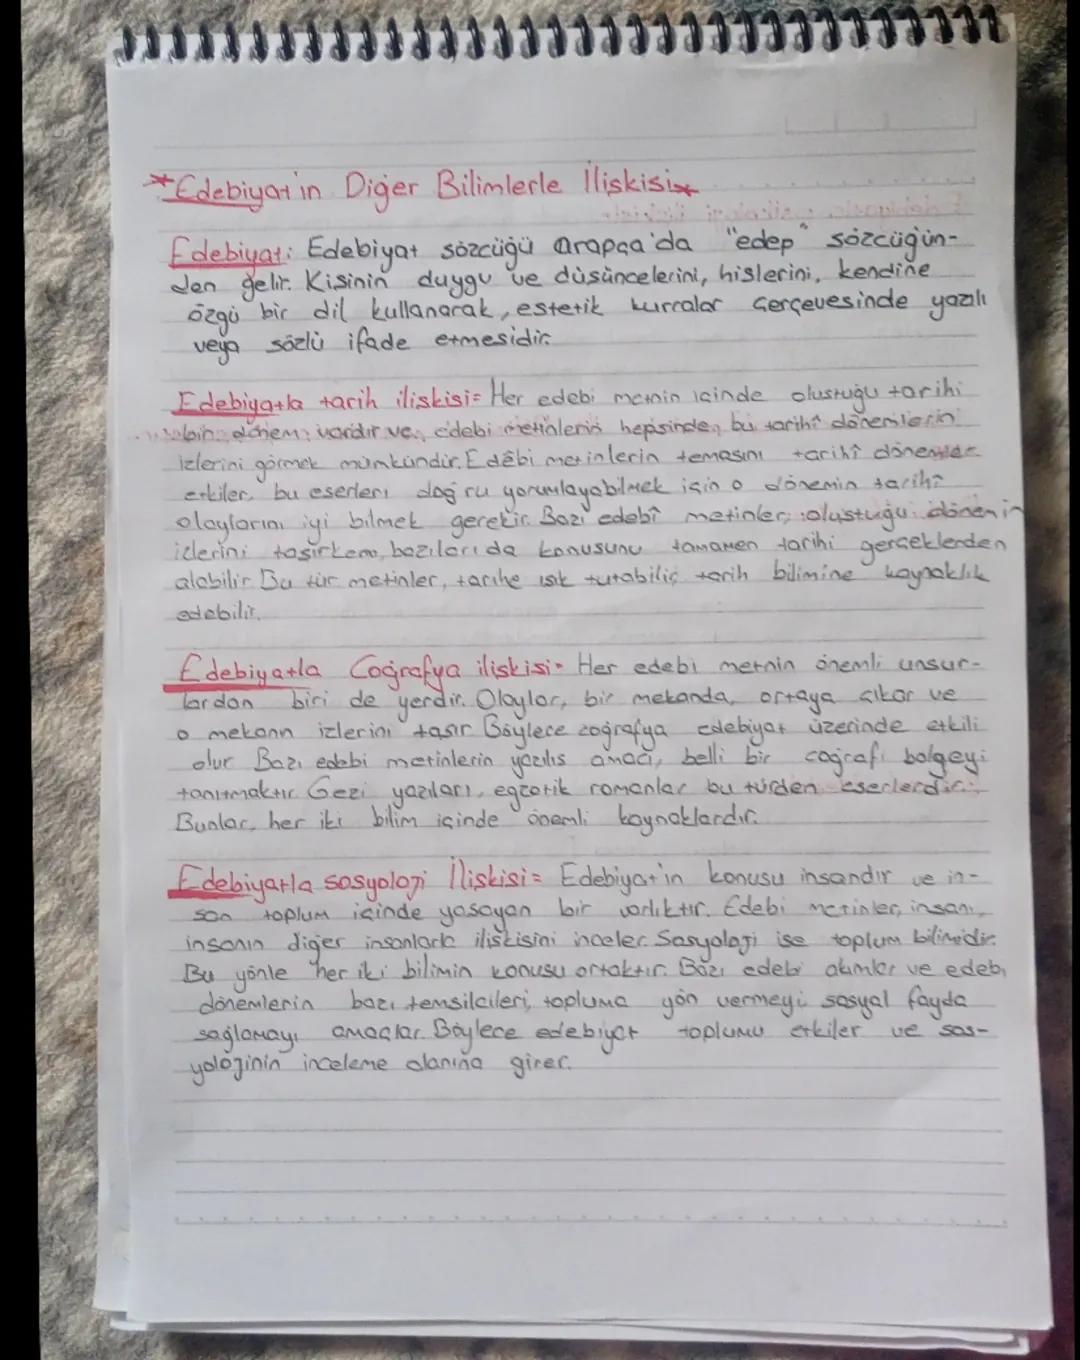 *Edebiyat'ın Diğer Bilimlerle İlişkisi*
Edebiyat: Edebiyat sözcüğü arapça'da "edep" sözcüğün-
den gelir. Kişinin duygu ve düşüncelerini, hislerini, kendine
özgü bir dil kullanarak, estetik kurralar çerçevesinde yazılı
veya sözlü ifade etmesidir.
Edebiyatla tarih ilişkisi= Her edebi metnin içinde oluştuğu tarihi
bir dönem vardır ve edebi metinlerin hepisinde, bu tarihî dönemlerin
izlerini görmek mümkündir. Edebi metinlerin temasını tarihî dönemler
etkiler, bu eserleri doğru yorumlayabilmek için o dönemin tarihî
olaylarını iyi bilmek gerekir. Bazı edebî metinler, oluştuğu dönemin
izlerini taşırken, bazıları da konusunu tamamen tarihi gerçeklerden
alabilir. Bu tür metinler, tarihe ışık tutabilir, tarih bilimine kaynaklık
edebilir.
Edebiyatla Coğrafya ilişkisi= Her edebi metnin önemli unsur-
lardan biri de yerdir. Olaylar, bir mekanda, ortaya çıkar ve
o mekanın izlerini taşır. Böylece coğrafya edebiyat üzerinde etkili
olur. Bazı edebbi metinlerin yazılış amacı, belli bir coğrafi bölgeyi
tanıtmaktır. Gezi yazıları, egzotik romanlar bu türden eserlerdir.
Bunlar, her iki bilim içinde önemli kaynaklardır.
Edebiyatla sosyoloji İlişkisi= Edebiyat'ın konusu insandır ve in-
san toplum içinde yaşayan bir varlıktır. Edebi metinler, insanı,
insanın diğer insanlarla ilişkisini inceler. Sosyoloji ise toplum bilimidir.
Bu yönle her iki bilimin konusu ortaktır. Bazı edebi akımlar ve edebi
dönemlerin bazı temsilcileri, topluma yön vermeyi, sosyal fayda
sağlamayı amaçlar. Böylece edebiyat toplumu etkiler ve sos-
yolojinin inceleme alanına girer.